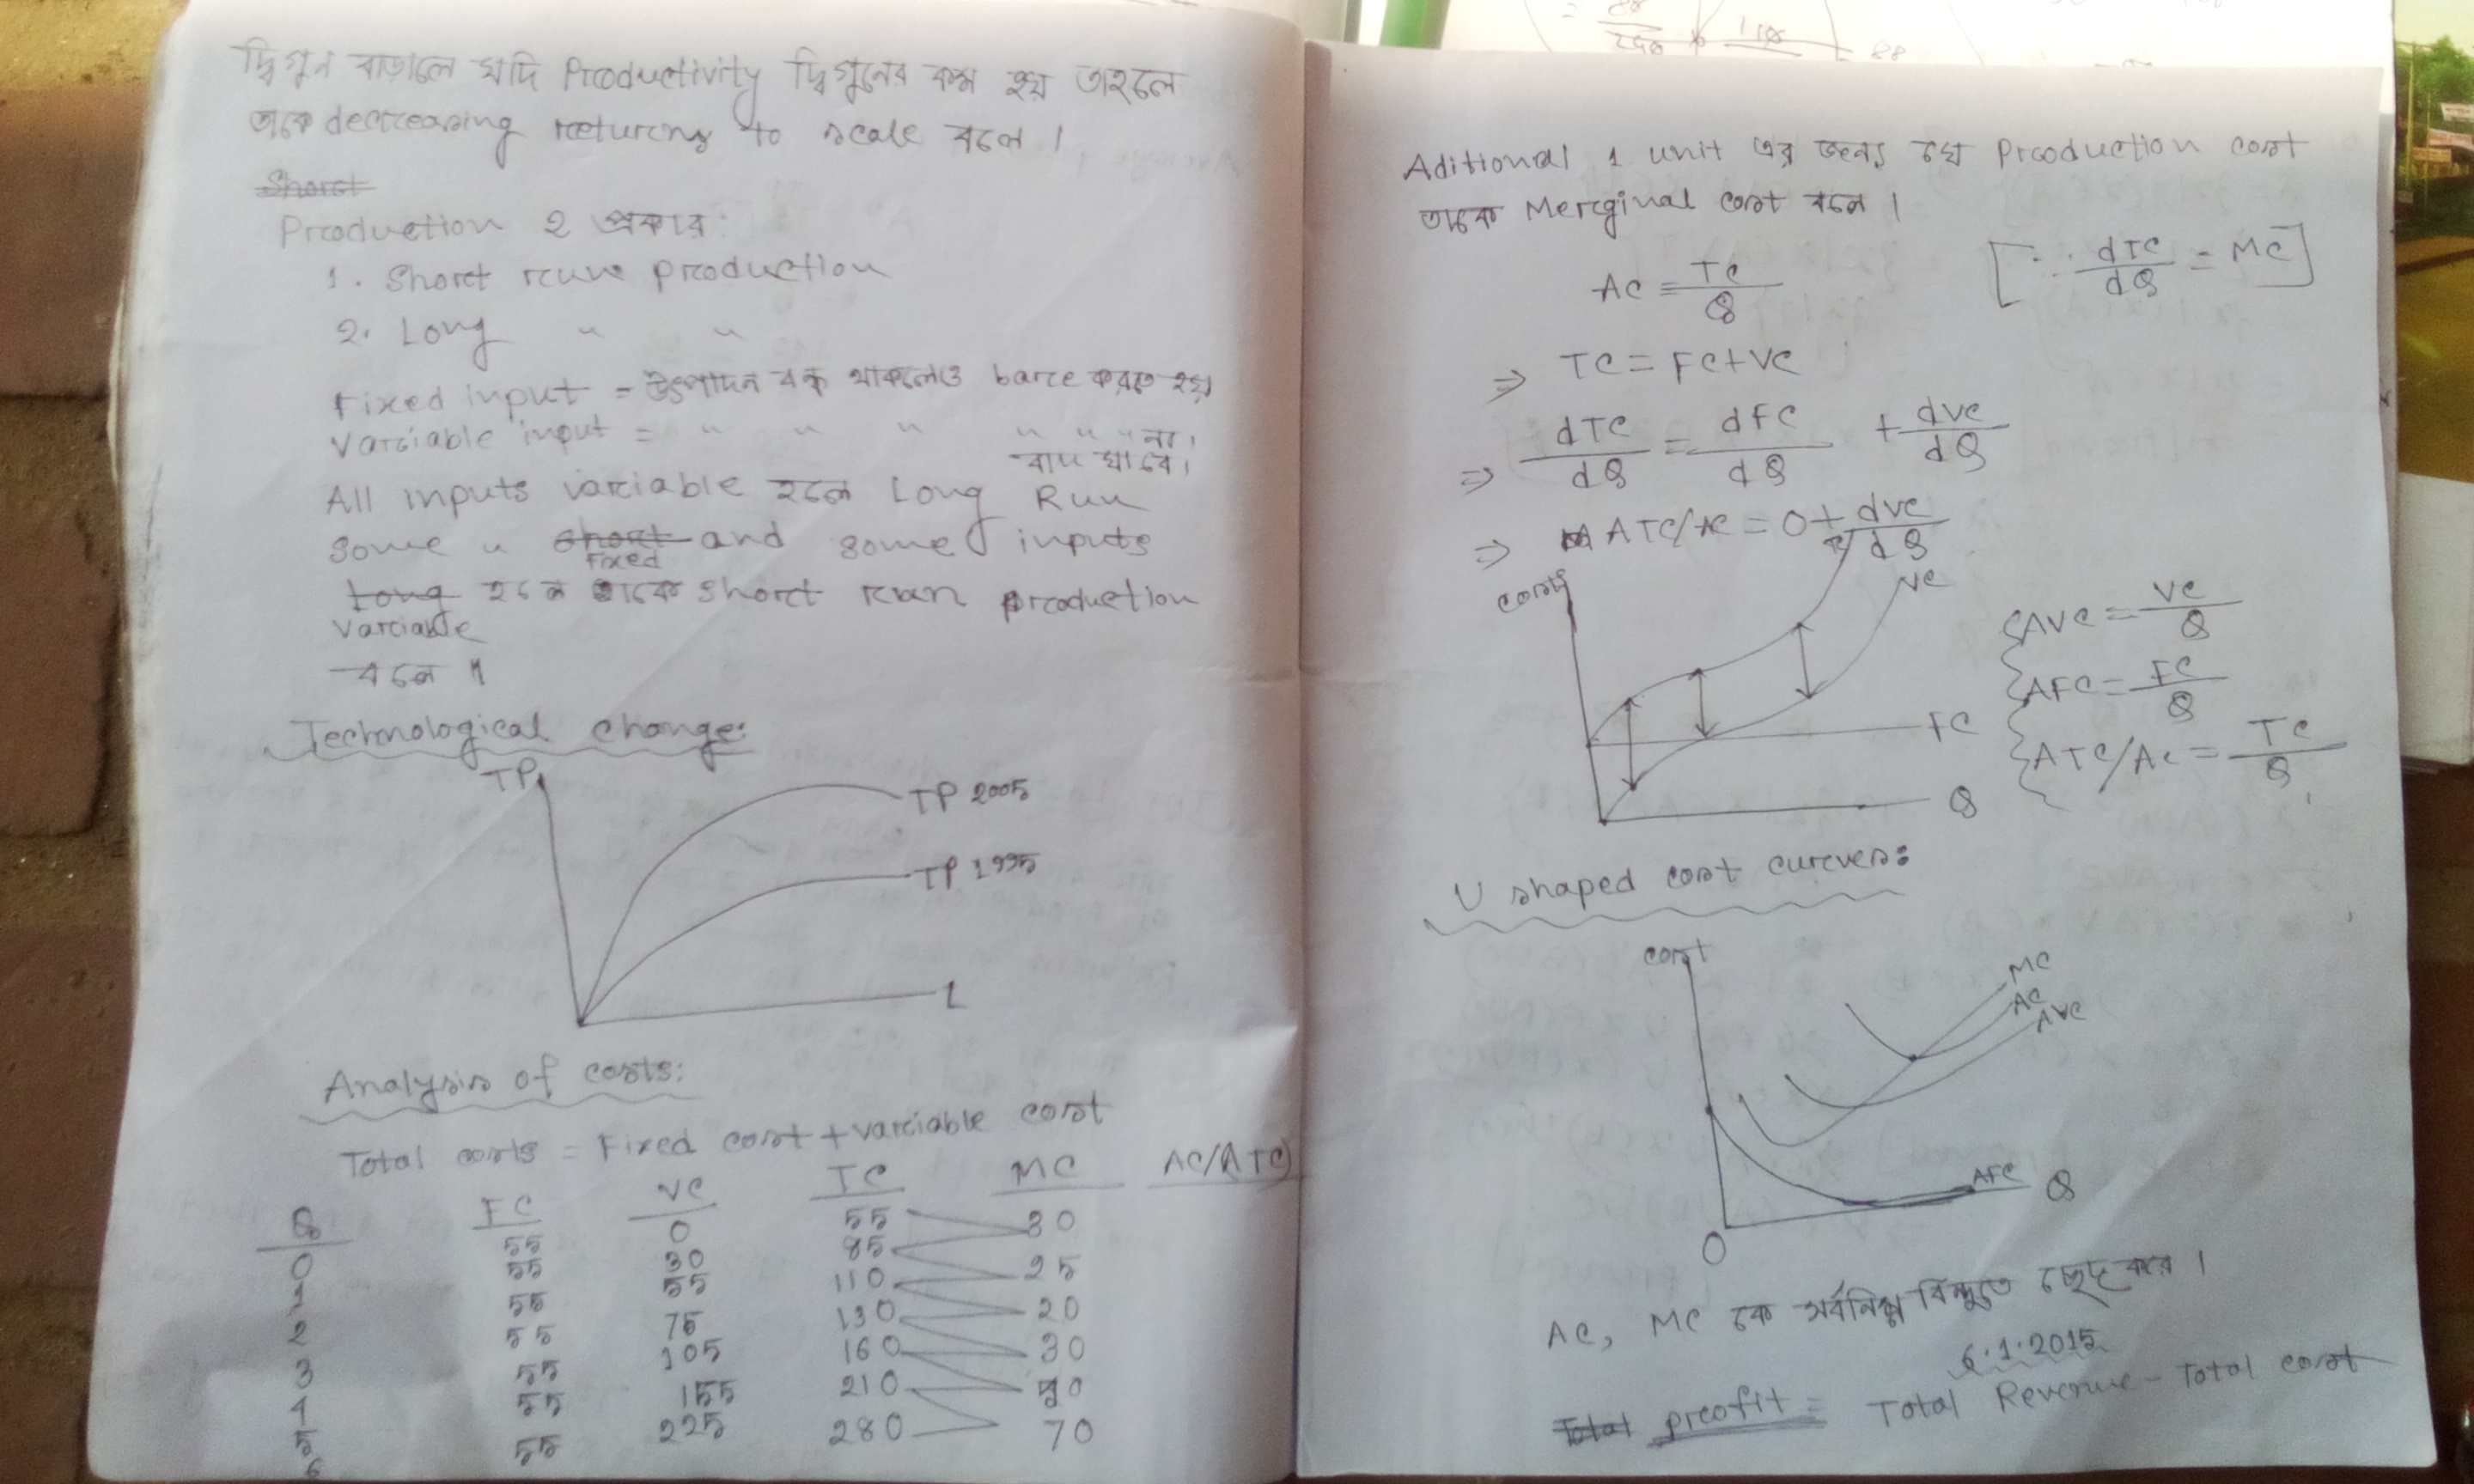 দ্বিগুন বাড়ালে যদি Productivity দ্বিগুনের কম হয় তাহলে
তাকে decreasing returns to scale বলে।
Short
Production 2 প্রকার:
1. Short run production
2. Long " "
Fixed input = উৎপাদন বন্ধ থাকলেও bare করতে হয়
Variable input = " " " " " " না।
বাদ যাবে।
All inputs variable হলে Long Run
Some " short and some inputs
Fixed
Long হলে তাকে short run production
Variable
বলে।
Technological change:
TP
TP 2005
TP 1995
L
Analysis of costs:
Total costs = Fixed cost + variable cost
Q FC VC TC MC AC/(ATC)
0 55 0 55 30
1 55 30 85 25
2 55 55 110 20
3 55 75 130 30
4 55 105 160 50
5 55 155 210 70
6 55 225 280
Aditional 1 unit এর জন্য যে Production cost
তাকে Merginal cost বলে।
AC = TC/Q [∵ dTC/dQ = MC]
⇒ TC = FC + VC
⇒ dTC/dQ = dFC/dQ + dVC/dQ
⇒ ATC/AC = 0 + dVC/dQ
cost
TC
VC
FC
Q
AVC = VC/Q
AFC = FC/Q
ATC/AC = TC/Q
U shaped cost curves:
cost
MC
AC
AVC
AFC
Q
O
AC, MC কে সর্বনিম্ন বিন্দুতে ছেদ করে।
6.1.2015
Total profit = Total Revenue - Total cost